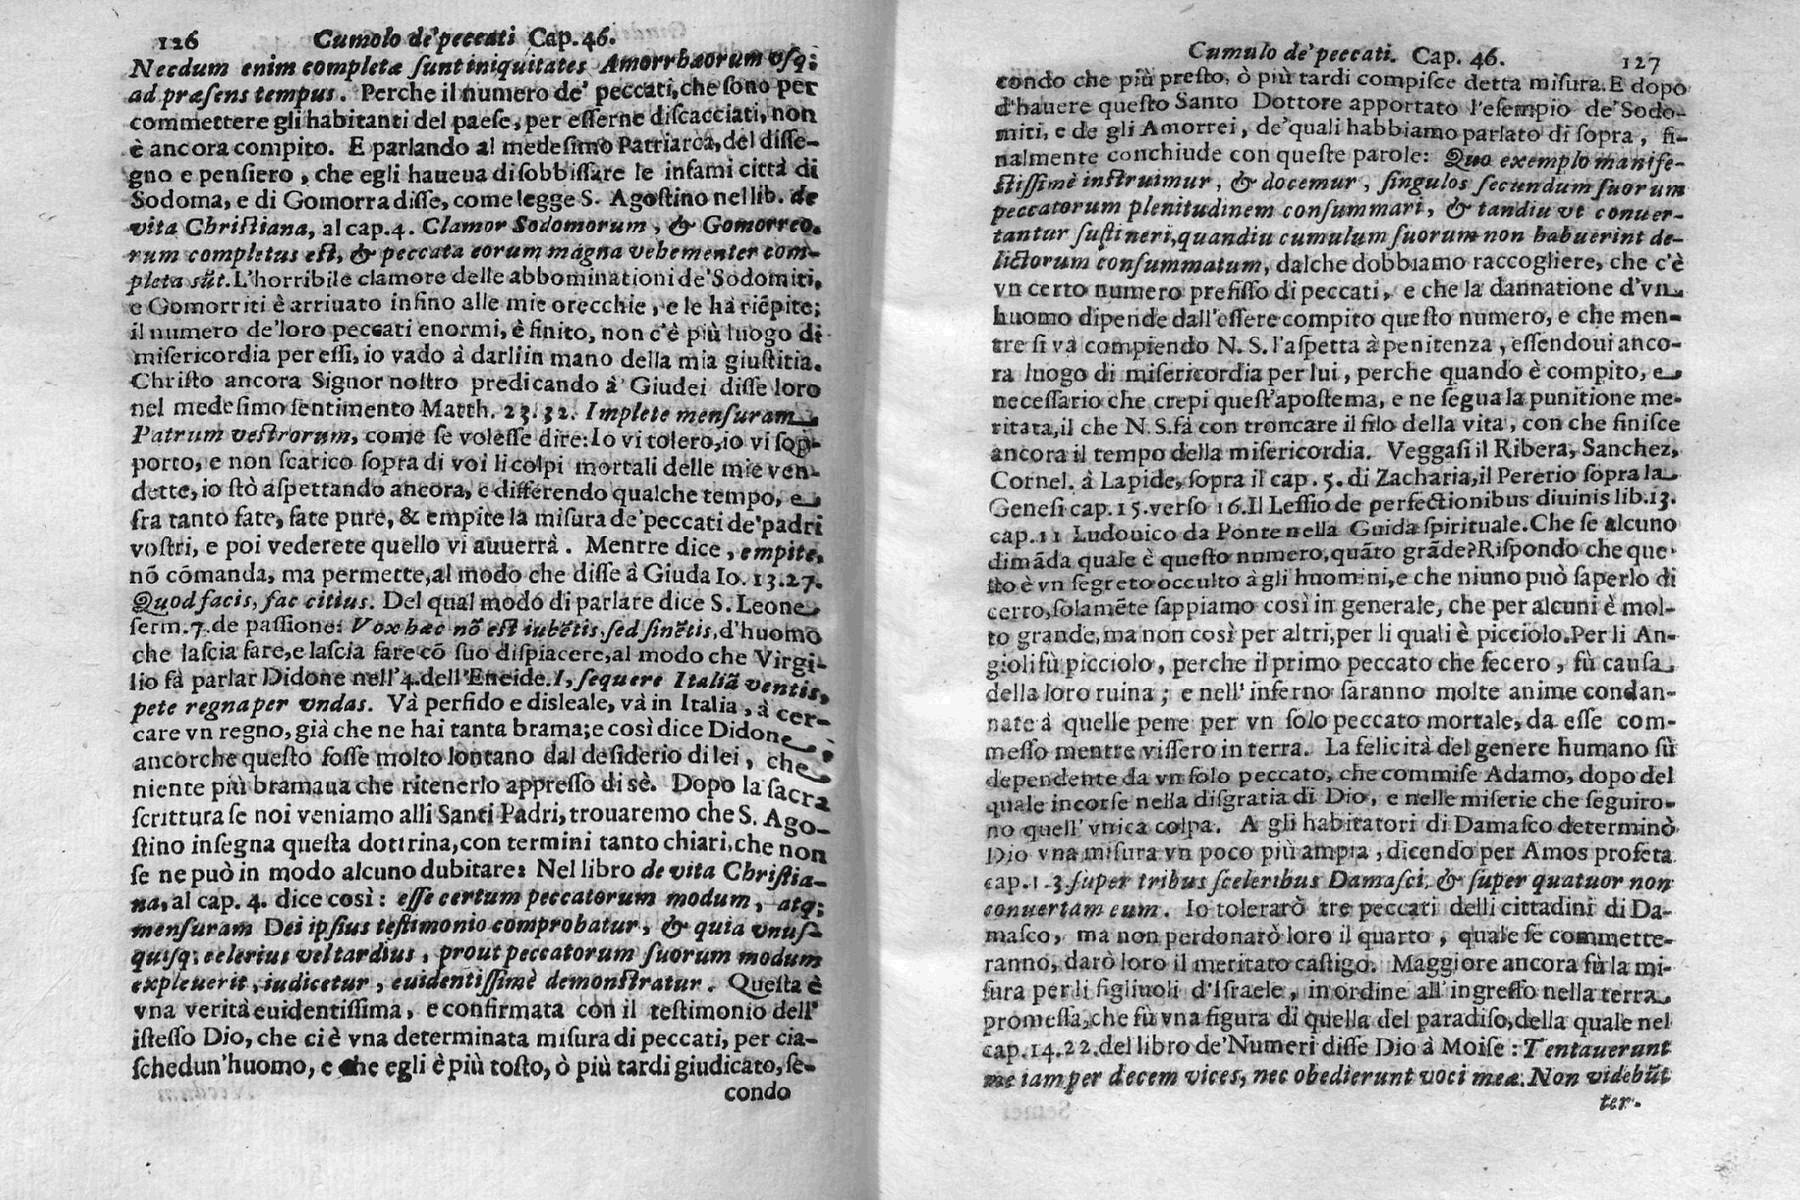 126 Cumolo de'peccati Cap. 46.
Necdum enim completæ sunt iniquitates Amorrhæorum vsq;
ad præsens tempus. Perche il numero de' peccati, che sono per
commettere gli habitanti del paese, per esserne discacciati, non
è ancora compito. E parlando al medesimo Patriarca, del disse-
gno e pensiero, che egli haueua di sobbissare le infami città di
Sodoma, e di Gomorra disse, come legge S. Agostino nel lib. de
vita Christiana, al cap. 4. Clamor Sodomorum, & Gomorreo.
rum completus est, & peccata eorum magna vehementer com-
pleta sũt. L'horribile clamore delle abbominationi de'Sodomiti,
e Gomorriti è arriuato infino alle mie orecchie, e le ha riẽpite;
il numero de'loro peccati enormi, è finito, non c'è più luogo di
misericordia per essi, io vado à darli in mano della mia giustitia.
Christo ancora Signor nostro predicando à Giudei disse loro
nel medesimo sentimento Matth. 23. 32. Implete mensuram
Patrum vestrorum, come se volesse dire: Io vi tolero, io vi sop-
porto, e non scarico sopra di voi li colpi mortali delle mie ven-
dette, io stò aspettando ancora, e differendo qualche tempo, e
fra tanto fate, fate pure, & empite la misura de'peccati de'padri
vostri, e poi vederete quello vi auuerrà. Mentre dice, empite,
nõ cõmanda, ma permette, al modo che disse à Giuda Io. 13. 27.
Quod facis, fac citius. Del qual modo di parlare dice S. Leone
serm. 7. de passione: Vox hæc nõ est iubẽtis, sed sinẽtis, d'huomo
che lascia fare, e lascia fare cõ suo dispiacere, al modo che Virgi-
lio fà parlar Didone nell'4. dell'Eneide. I, sequere Italiã ventis,
pete regna per vndas. Và perfido e disleale, và in Italia, à cer-
care vn regno, già che ne hai tanta brama; e così dice Didone
ancorche questo fosse molto lontano dal desiderio di lei, che
niente più bramaua che ritenerlo appresso di sè. Dopo la sacra
scrittura se noi veniamo alli Santi Padri, trouaremo che S. Ago-
stino insegna questa dottrina, con termini tanto chiari, che non
se ne può in modo alcuno dubitare: Nel libro de vita Christia-
na, al cap. 4. dice così: esse certum peccatorum modum, atq;
mensuram Dei ipsius testimonio comprobatur, & quia vnus-
quisq; celerius vel tardius, prout peccatorum suorum modum
expleuerit, iudicetur, euidentissimè demonstratur. Questa è
vna verità euidentissima, e confirmata con il testimonio dell'
istesso Dio, che ci è vna determinata misura di peccati, per cia-
schedun'huomo, e che egli è più tosto, ò più tardi giudicato, se-
condo
Cumulo de'peccati. Cap. 46. 127
condo che più presto, ò più tardi compisce detta misura. E dopo
d'hauere questo Santo Dottore apportato l'esempio de'Sodo-
miti, e de gli Amorrei, de'quali habbiamo parlato di sopra, fi-
nalmente conchiude con queste parole: Quo exemplo manife-
stissimè instruimur, & docemur, singulos secundum suorum
peccatorum plenitudinem consummari, & tandiu vt conuer-
tantur sustineri, quandiu cumulum suorum non habuerint de-
lictorum consummatum, dalche dobbiamo raccogliere, che c'è
vn certo numero prefisso di peccati, e che la dannatione d'vn
huomo dipende dall'essere compito questo numero, e che men-
tre si và compiendo N. S. l'aspetta à penitenza, essendoui anco-
ra luogo di misericordia per lui, perche quando è compito, e
necessario che crepi quest'apostema, e ne segua la punitione me-
ritata, il che N. S. fà con troncare il filo della vita, con che finisce
ancora il tempo della misericordia. Veggasi il Ribera, Sanchez,
Cornel. à Lapide, sopra il cap. 5. di Zacharia, il Pererio sopra la
Genesi cap. 15. verso 16. Il Lessio de perfectionibus diuinis lib. 13.
cap. 11 Ludouico da Ponte nella Guida spirituale. Che se alcuno
dimãda quale è questo numero, quãto grãde? Rispondo che que-
sto è vn segreto occulto à gli huomini, e che niuno può saperlo di
certo, solamẽte sappiamo così in generale, che per alcuni è mol-
to grande, ma non così per altri, per li quali è picciolo. Per li An-
gioli fù picciolo, perche il primo peccato che fecero, fù causa
della loro ruina; e nell' inferno saranno molte anime condan-
nate à quelle pene per vn solo peccato mortale, da esse com-
messo mentre vissero in terra. La felicità del genere humano fù
dependente da vn solo peccato, che commise Adamo, dopo del
quale incorse nella disgratia di Dio, e nelle miserie che seguiro-
no quell' vnica colpa. A gli habitatori di Damasco determinò
Dio vna misura vn poco più ampia, dicendo per Amos profeta
cap. 1. 3. super tribus sceleribus Damasci, & super quatuor non
conuertam eum. Io tolerarò tre peccati delli cittadini di Da-
masco, ma non perdonarò loro il quarto, quale se commette-
ranno, darò loro il meritato castigo. Maggiore ancora fù la mi-
sura per li figliuoli d'Israele, in ordine all'ingresso nella terra
promessa, che fù vna figura di quella del paradiso, della quale nel
cap. 14. 22. del libro de'Numeri disse Dio à Moise: Tentauerunt
me iam per decem vices, nec obedierunt voci meæ. Non videbũt
ter.